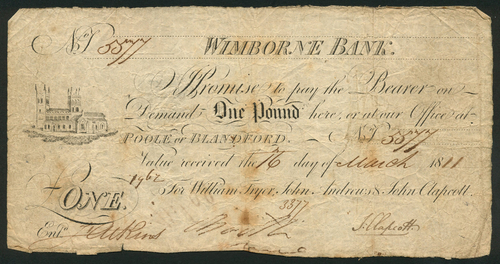 No. 5577 WIMBORNE BANK.
I Promise to pay the Bearer on
Demand One Pound here, or at our Office at
POOLE or BLANDFORD. No. 5577
Value received the 16 day of March 1811
For William Fryer, John Andrews & John Clapcott.
ONE.
5577
Entd. J. Clapcott